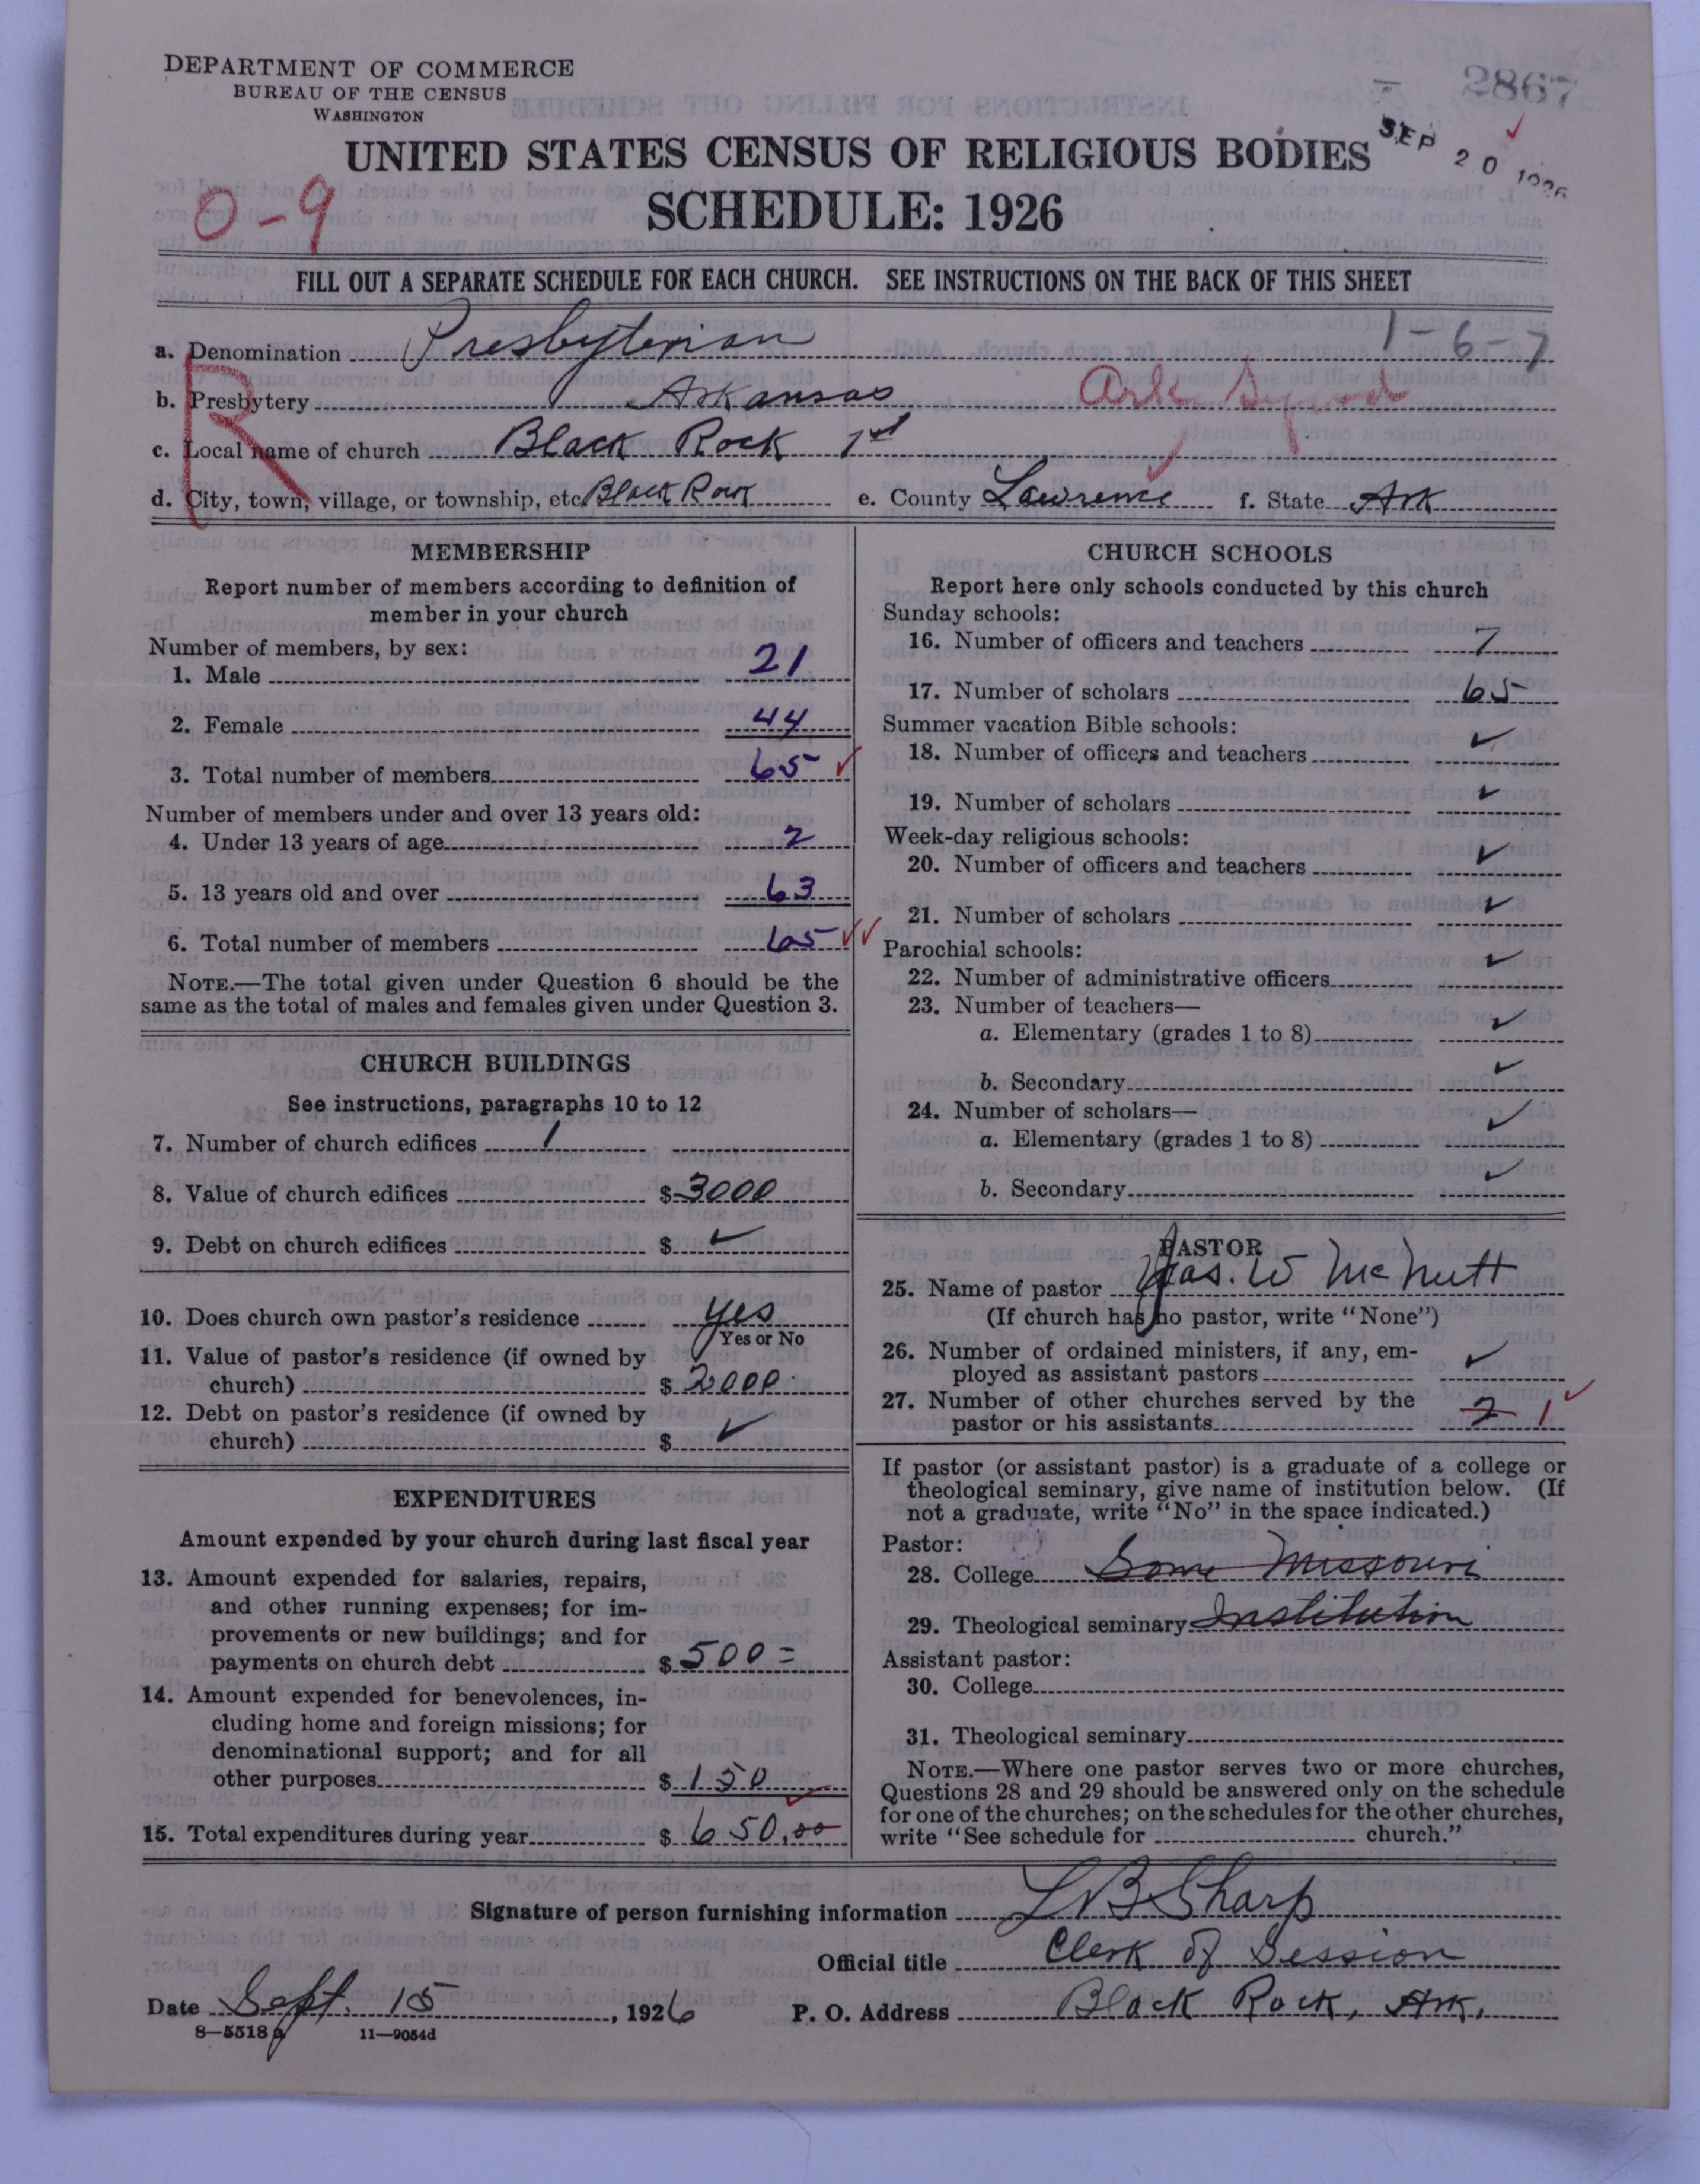 DEPARTMENT OF COMMERCE
BUREAU OF THE CENSUS
WASHINGTON
2867
SEP 20 1926
UNITED STATES CENSUS OF RELIGIOUS BODIES
SCHEDULE: 1926
0-9
FILL OUT A SEPARATE SCHEDULE FOR EACH CHURCH. SEE INSTRUCTIONS ON THE BACK OF THIS SHEET
1-6-7
a. Denomination Presbyterian
R
b. Presbytery Arkansas Ark Synod
c. Local name of church Black Rock 1st
d. City, town, village, or township, etc. Black Rock e. County Lawrence f. State Ark
MEMBERSHIP
Report number of members according to definition of
member in your church
Number of members, by sex:
1. Male 21
2. Female 44
3. Total number of members 65 ✓
Number of members under and over 13 years old:
4. Under 13 years of age 2
5. 13 years old and over 63
6. Total number of members 65 ✓✓
NOTE.—The total given under Question 6 should be the
same as the total of males and females given under Question 3.
CHURCH BUILDINGS
See instructions, paragraphs 10 to 12
7. Number of church edifices 1
8. Value of church edifices $ 3000
9. Debt on church edifices $ ✓
10. Does church own pastor's residence yes
Yes or No
11. Value of pastor's residence (if owned by
church) $ 2000
12. Debt on pastor's residence (if owned by
church) $ ✓
EXPENDITURES
Amount expended by your church during last fiscal year
13. Amount expended for salaries, repairs,
and other running expenses; for im-
provements or new buildings; and for
payments on church debt $ 500=
14. Amount expended for benevolences, in-
cluding home and foreign missions; for
denominational support; and for all
other purposes $ 150
15. Total expenditures during year $ 650.00
CHURCH SCHOOLS
Report here only schools conducted by this church
Sunday schools:
16. Number of officers and teachers 7
17. Number of scholars 65
Summer vacation Bible schools:
18. Number of officers and teachers ✓
19. Number of scholars ✓
Week-day religious schools:
20. Number of officers and teachers ✓
21. Number of scholars ✓
Parochial schools:
22. Number of administrative officers ✓
23. Number of teachers—
a. Elementary (grades 1 to 8) ✓
b. Secondary ✓
24. Number of scholars—
a. Elementary (grades 1 to 8) ✓
b. Secondary ✓
PASTOR
25. Name of pastor Jas. W McNutt
(If church has no pastor, write "None")
26. Number of ordained ministers, if any, em-
ployed as assistant pastors ✓
27. Number of other churches served by the
pastor or his assistants 2 1 ✓
If pastor (or assistant pastor) is a graduate of a college or
theological seminary, give name of institution below. (If
not a graduate, write "No" in the space indicated.)
Pastor:
28. College Some Missouri
29. Theological seminary Institution
Assistant pastor:
30. College
31. Theological seminary
NOTE.—Where one pastor serves two or more churches,
Questions 28 and 29 should be answered only on the schedule
for one of the churches; on the schedules for the other churches,
write "See schedule for church."
Signature of person furnishing information L B Sharp
Official title Clerk of Session
Date Sept. 15, 1926 P. O. Address Black Rock, Ark.
8—5518a 11—9054d